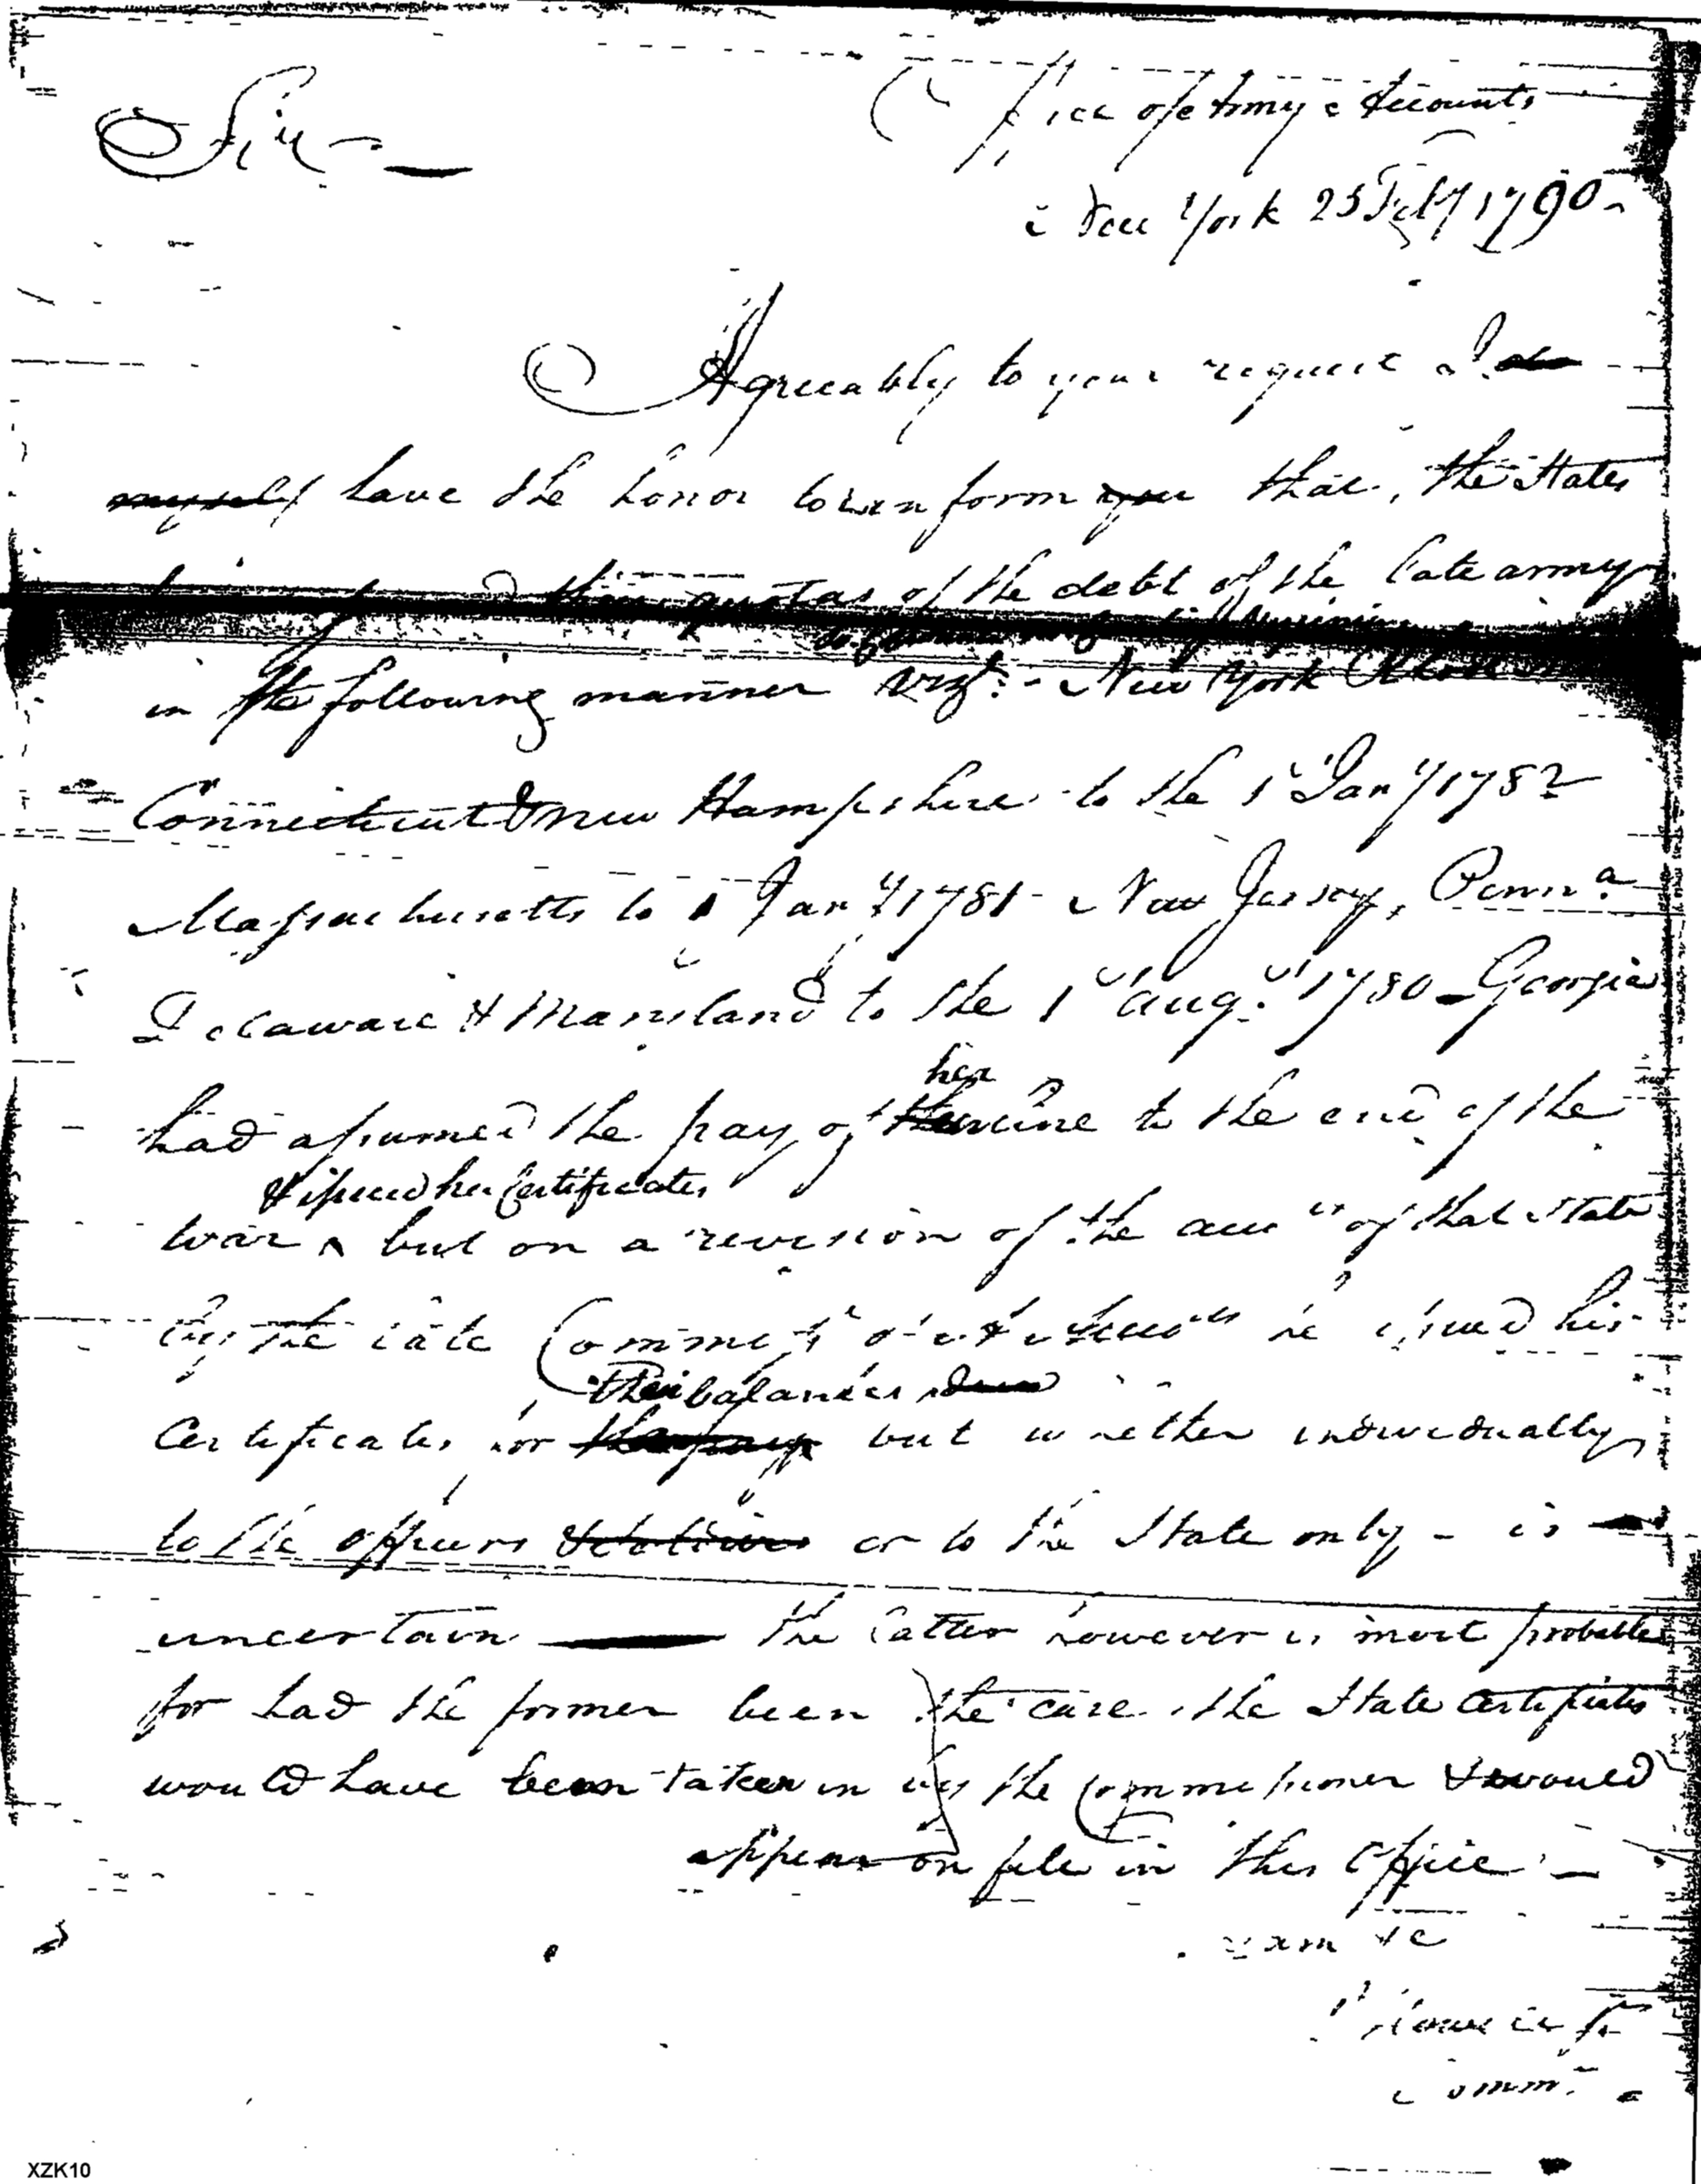 Office of Army Accounts
Sir
New York 25 Feby 1790
Agreeably to your request I do
myself have the honor to inform you that, the States
their quotas of the debt of the late army
in the following manner vizt:- New York
Connecticut & New Hampshire to the 1st Jany 1782
Massachusetts to 1 Jany 1781 - New Jersey, Penna
Delaware & Maryland to the 1st augt 1780 - Georgia
her
had assumed the pay of line to the end of the
& issued her Certificates
war ^ but on a revision of the accts of that State
by the late Commissr of he issued his
their balances due
Certificates for but whether individually
to the officers or to the State only - is
uncertain — the latter however is most probable
for had the former been the case the State Certificates
would have been taken in by the Commissioner & would
appear on file in this Office -
I am &c
Howell Jr
Commr.
XZK10